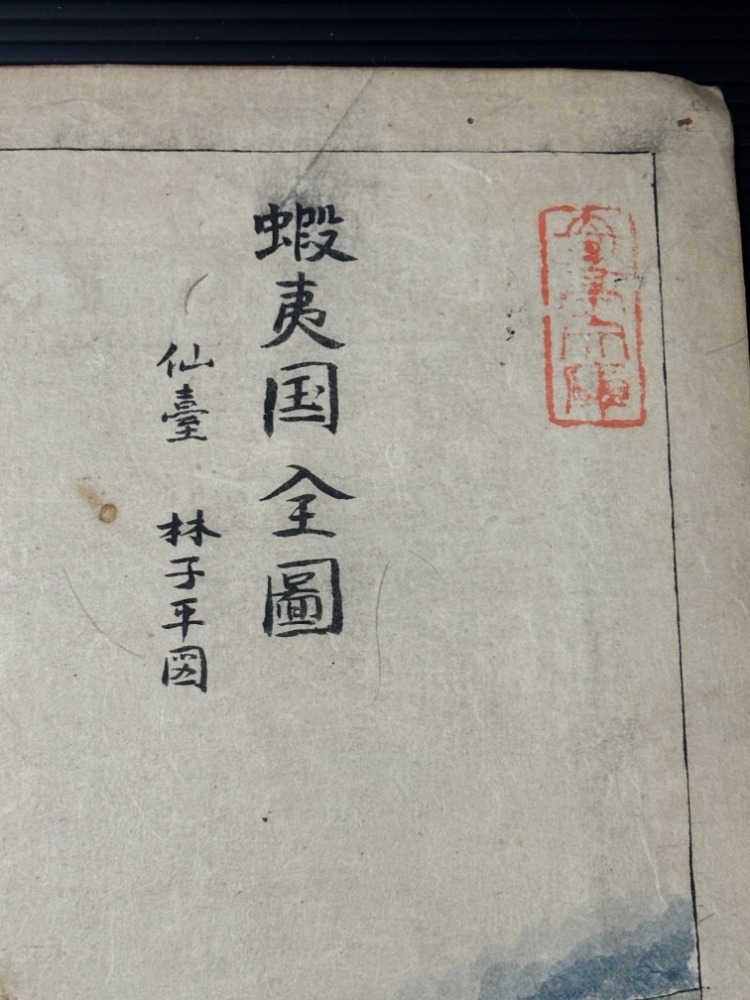 蝦夷国全圖
仙臺 林子平図